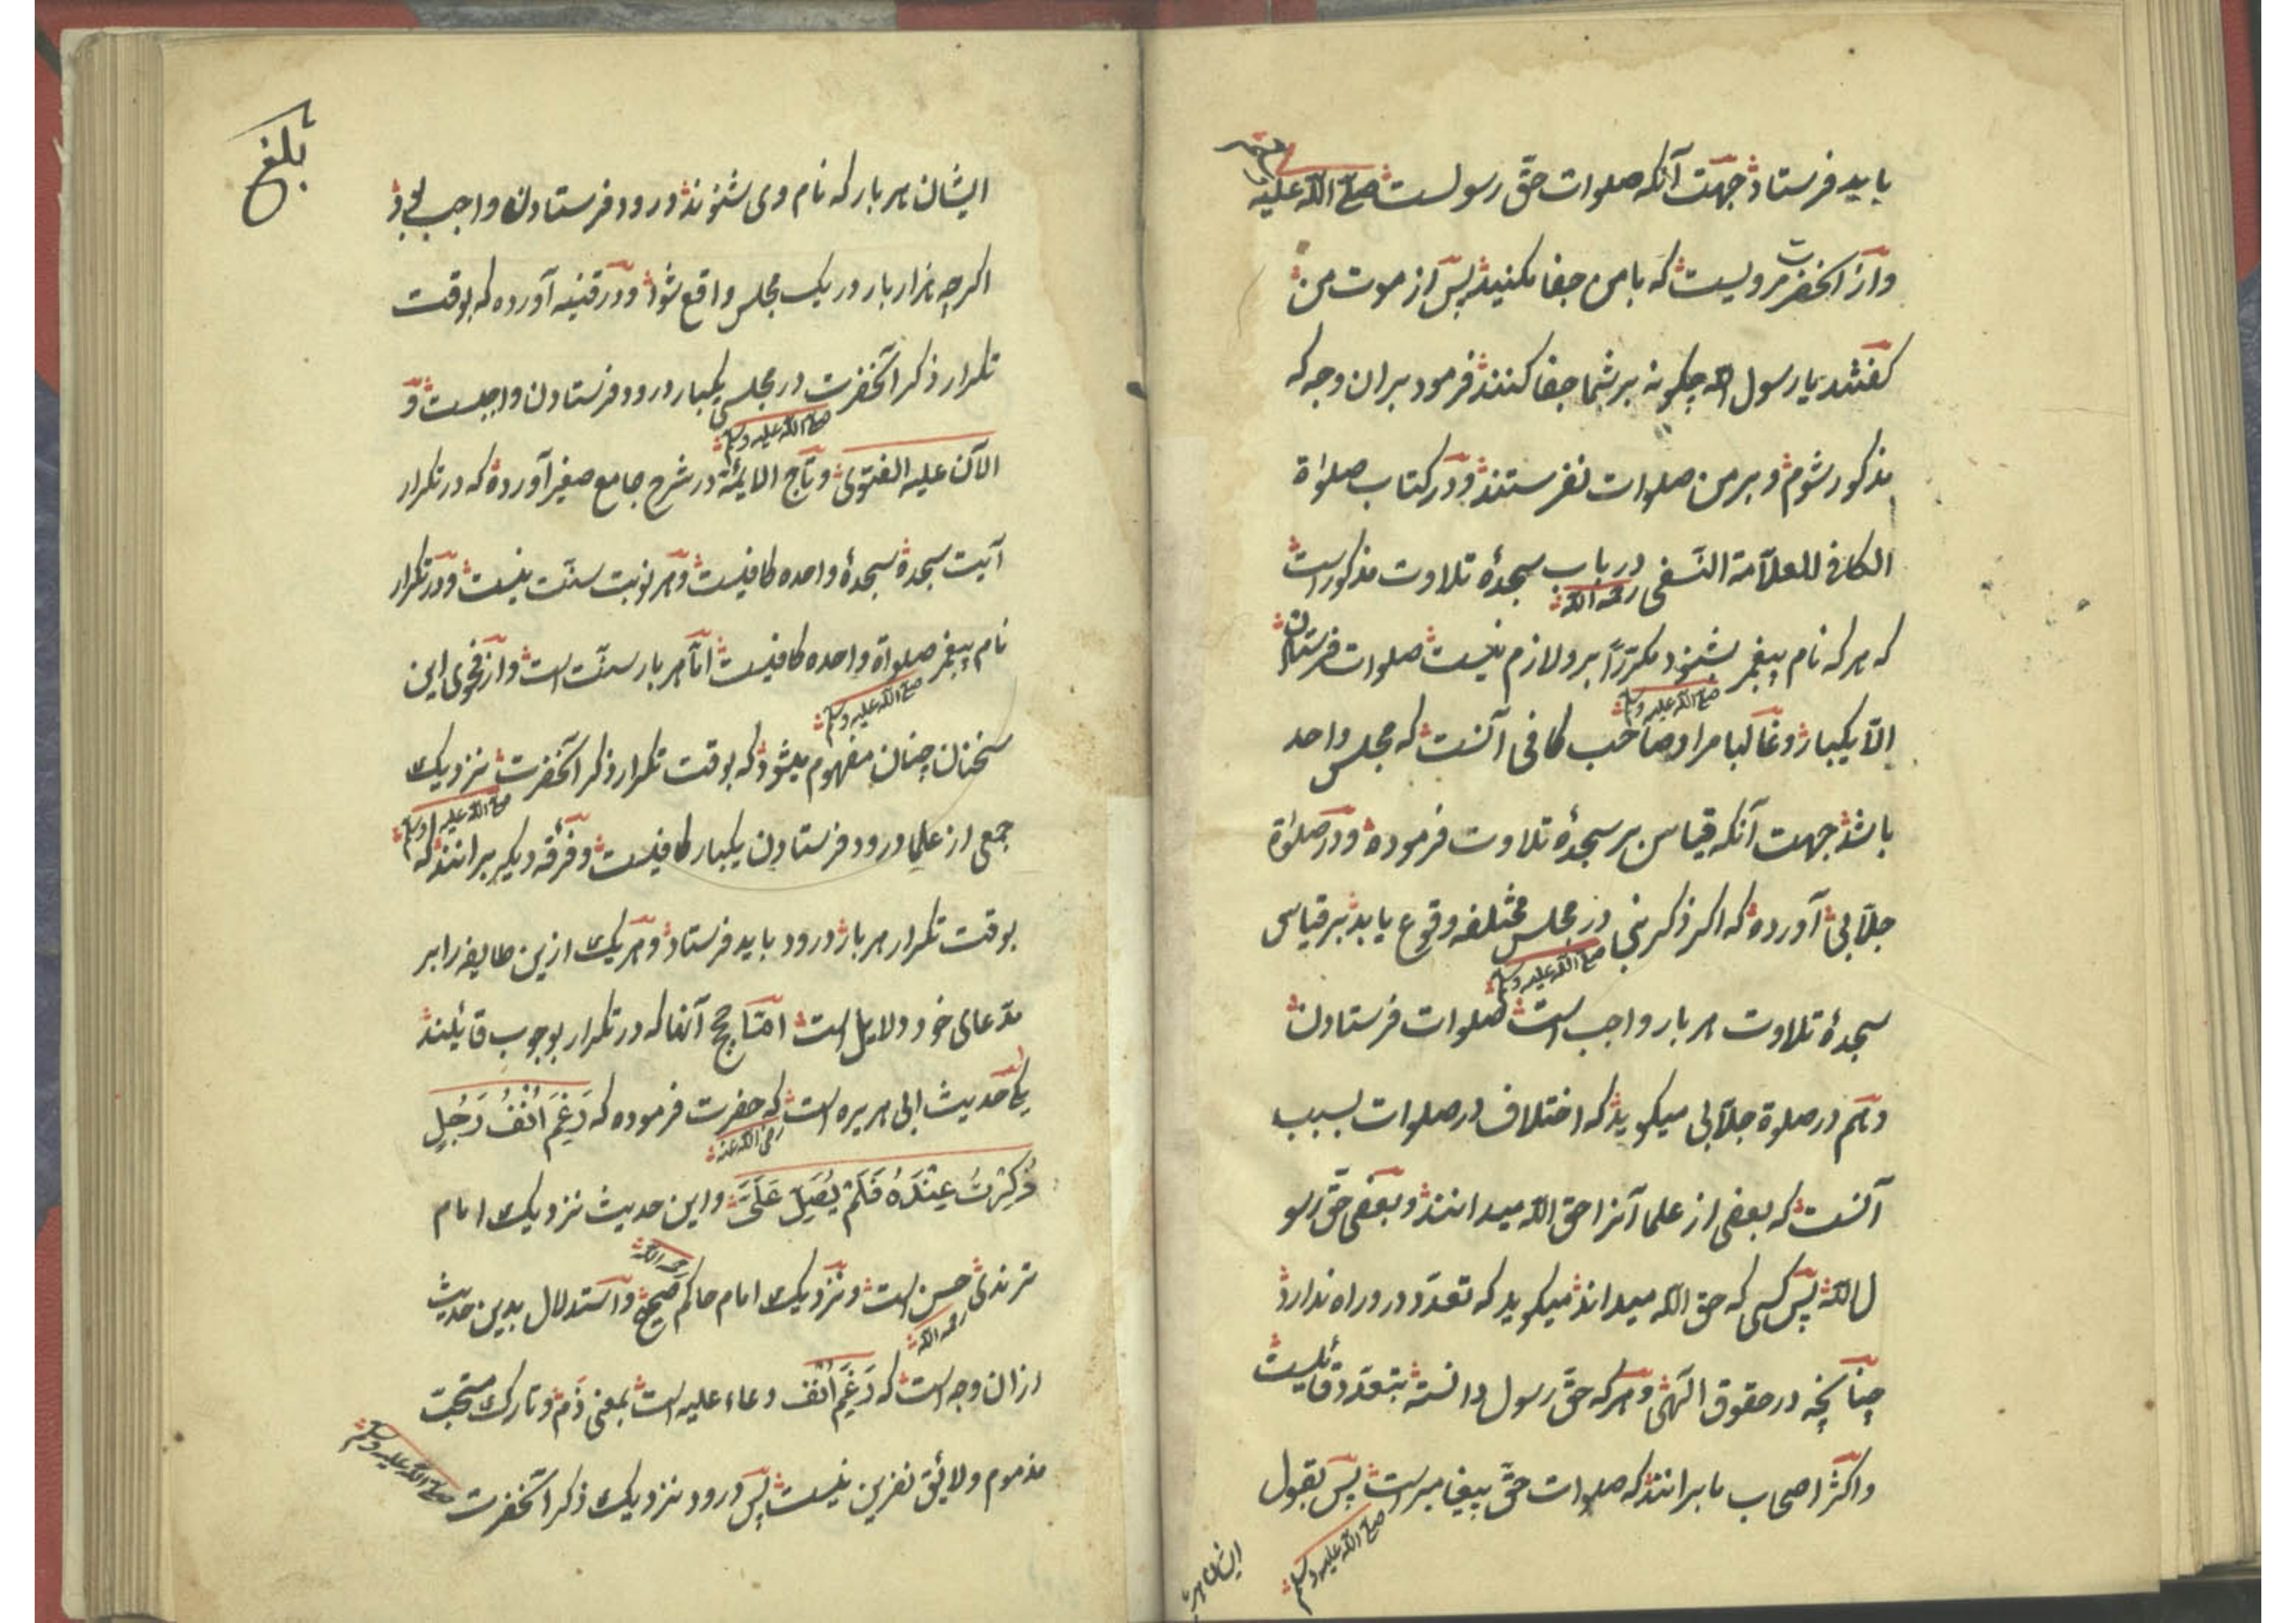 باید فرستاد جهت آنکه صلوات حقّ رسولست صلی الله علیه وسلم
واز آنحضرت مرویست که با من جفا مکنید پس از موت من
کفتند یا رسول الله چکونه بر شما جفا کنند فرمود بران وجه که
مذکور شوم و بر من صلوات نفرستند ودر کتاب صلوٰة
الکافی للعلاّمة النسَفی رحمه الله در باب سجدهٔ تلاوت مذکور است
که هر که نام پیغمبر صلی الله علیه وسلم بشنود مکرّراً برو لازم نیست صلوات فرستادن
الاّ یکبار وغالبا مراد صاحب کافی آنست که مجلس واحد
باشد جهت آنکه قیاس بر سجدهٔ تلاوت فرموده ودر صلوٰة
جلاّبی آورده که اکر ذکر نبی صلی الله علیه وسلم در مجلس مختلفه وقوع یابد بر قیاس
سجدهٔ تلاوت هر بار واجب است صلوات فرستادن
وهم در صلوة جلاّبی میکوید که اختلاف در صلوات بسبب
آنست که بعضی از علما آنرا حق الله میدانند وبعضی حقّ رسو
ل الله پس کسی که حق الله میداند میکوید که تعدّد درو راه ندارد
چنانچه در حقوق الٓهی وهر که حقّ رسول دانسته بتعدّد قائلست
واکثر اصحاب ما برانند که صلوات حقّ پیغامبر است صلی الله علیه وسلم پس بقول
ایشان هر
بلغ
ایشان هر بار که نام وی شنوند درود فرستادن واجب بود
اکرچه هزار بار در یک مجلس واقع شود ودر قنیه آورده که بوقت
تکرار ذکر آنحضرت صلی الله علیه وسلم در مجلسی یکبار درود فرستادن واجبست و
الآن علیه الفتوی وتاج الایمّة در شرح جامع صغیر آورده که در تکرار
آیت سجدة سجدهٔ واحده کافیست وهر نوبت سنّت نیست ودر تکرار
نام پیغمبر صلی الله علیه وسلم صلواة واحده کافیست امّا هر بار سنّت است واز فحوی این
سخنان چنان مفهوم میشود که بوقت تکرار ذکر آنحضرت صلی الله علیه وسلم نزدیک
جمعی از علما درود فرستادن یکبار کافیست وفرقه دیکر برانند که
بوقت تکرار هر بار درود باید فرستاد وهر یک ازین طایفه را بر
مدّعای خود دلایل است امّا حجج آنها که در تکرار بوجوب قائیلند
یکی حدیث ابی هریره رضی الله عنه است که حضرت فرموده که رَغِمَ اَنْفُ رَجُلٍ
ذُکِرْتُ عِنْدَهُ فَلَمْ یُصَلِّ عَلَیَّ واین حدیث نزدیک امام
ترمذی رحمه الله حسن است ونزدیک امام حاکم رحمه الله صحیح واستدلال بدین حدیث
ازان وجه است که رَغِمَ اَنْفُ دعاء علیه است بمعنی ذمّ وتارک مستحبّ
مذموم ولائق نفرین نیست پس درود نزدیک ذکر آنحضرت صلی الله علیه وسلم